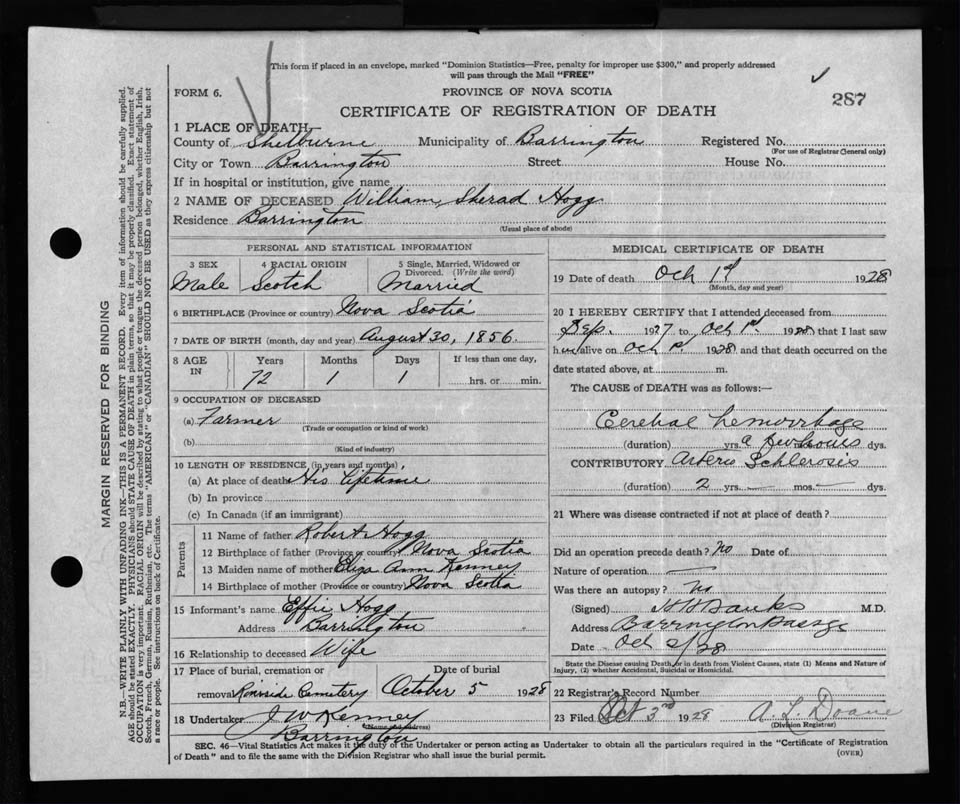 This form if placed in an envelope, marked "Dominion Statistics—Free, penalty for improper use $300," and properly addressed
will pass through the Mail "FREE"
FORM 6.
PROVINCE OF NOVA SCOTIA
287
CERTIFICATE OF REGISTRATION OF DEATH
1 PLACE OF DEATH
County of Shelburne Municipality of Barrington Registered No.
(For use of Registrar General only)
City or Town Barrington Street House No.
If in hospital or institution, give name
2 NAME OF DECEASED William Sherad Hogg
Residence Barrington
(Usual place of abode)
PERSONAL AND STATISTICAL INFORMATION
3 SEX 4 RACIAL ORIGIN 5 Single, Married, Widowed or Divorced. (Write the word)
Male Scotch Married
6 BIRTHPLACE (Province or country) Nova Scotia
7 DATE OF BIRTH (month, day and year) August 30, 1856.
8 AGE IN Years Months Days If less than one day,
72 1 1 hrs. or min.
9 OCCUPATION OF DECEASED
(a) Farmer
(Trade or occupation or kind of work)
(b)
(Kind of industry)
10 LENGTH OF RESIDENCE (in years and months)
(a) At place of death His Lifetime
(b) In province
(c) In Canada (if an immigrant)
Parents
11 Name of father Robert Hogg
12 Birthplace of father (Province or country) Nova Scotia
13 Maiden name of mother Eliza Ann Kenney
14 Birthplace of mother (Province or country) Nova Scotia
15 Informant's name Effie Hogg
Address Barrington
16 Relationship to deceased Wife
17 Place of burial, cremation or Date of burial
removal Cemetery October 5 1928
18 Undertaker J W Kenney
(Name and address)
Barrington
MEDICAL CERTIFICATE OF DEATH
19 Date of death Oct 1st 1928
(Month, day and year)
20 I HEREBY CERTIFY that I attended deceased from
Sep. 1927 to Oct 1st 1928 that I last saw
him alive on Oct 1st 1928 and that death occurred on the
date stated above, at m.
The CAUSE of DEATH was as follows:—
Cerebral hemorrhage
(duration) yrs. a few hours dys.
CONTRIBUTORY Arterio Schlerosis
(duration) 2 yrs. — mos. — dys.
21 Where was disease contracted if not at place of death?
Did an operation precede death? no Date of
Nature of operation —
Was there an autopsy? no
(Signed) Banks M.D.
Address Barrington Passage
Date Oct 2/28
State the Disease causing Death, or in death from Violent Causes, state (1) Means and Nature of
Injury, (2) whether Accidental, Suicidal or Homicidal.
22 Registrar's Record Number
23 Filed Oct 3rd 1928 A L Doane
(Division Registrar)
SEC. 46—Vital Statistics Act makes it the duty of the Undertaker or person acting as Undertaker to obtain all the particulars required in the "Certificate of Registration
of Death" and to file the same with the Division Registrar who shall issue the burial permit.
(OVER)
MARGIN RESERVED FOR BINDING
N.B.—WRITE PLAINLY WITH UNFADING INK—THIS IS A PERMANENT RECORD. Every item of information should be carefully supplied.
AGE should be stated EXACTLY. PHYSICIANS should STATE CAUSE OF DEATH in plain terms, so that it may be properly classified. Exact statement of
OCCUPATION is very important. RACIAL ORIGIN will be described by stating to what people or tongue the deceased person belonged, whether English, Irish,
Scotch, French, German, Russian, Ruthenian, etc. The terms "AMERICAN" or "CANADIAN" SHOULD NOT BE USED as they express citizenship but not
a race or people. See instructions on back of Certificate.